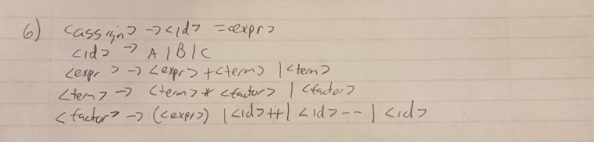 6) <assign> → <id> = <expr>
<id> → A | B | C
<expr> → <expr> + <term> | <term>
<term> → <term> * <factor> | <factor>
<factor> → (<expr>) | <id>++ | <id>-- | <id>